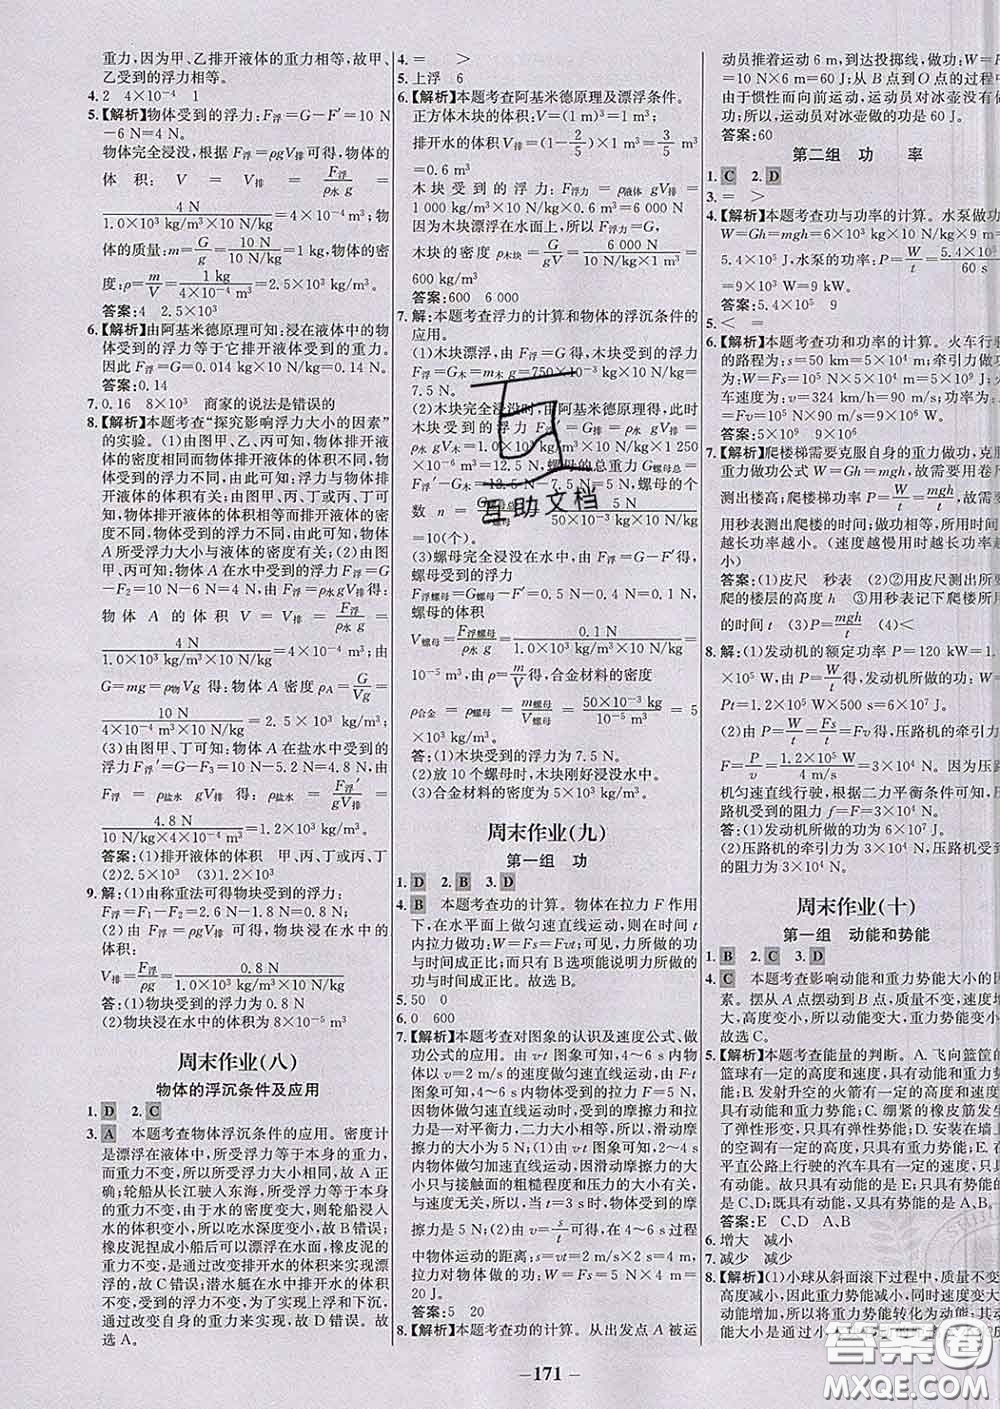 重力,因为甲、乙排开液体的重力相等,故甲、
乙受到的浮力相等。
4. 2 4×10⁻⁴ 1
5.【解析】物体受到的浮力:F浮=G-F′=10 N
-6 N=4 N。
物体完全浸没,根据 F浮=ρgV排可得,物体
体积: V = V排 = F浮/(ρ水 g) =
4 N/(1.0×10³ kg/m³×10 N/kg)=4×10⁻⁴ m³;物
体的质量:m=G/g=10 N/(10 N/kg)=1 kg,物体的密
度:ρ=m/V=1 kg/(4×10⁻⁴ m³)=2.5×10³ kg/m³。
答案:4 2.5×10³
6.【解析】由阿基米德原理可知:浸在液体中的物
体受到的浮力等于它排开液体受到的重力。
因此 F浮=G排=m排g=0.014 kg×10 N/kg=0.14 N。
答案:0.14
7. 0.16 8×10³ 商家的说法是错误的
8.【解析】本题考查“探究影响浮力大小的因素”
的实验。(1)由图甲、乙、丙可知:物体排开液
体的密度相同而物体排开液体的体积不同,
物体受到的浮力不同,由此可知:浮力大小与
物体排开液体的体积有关;由图甲、丙、丁或
图甲、丙、丁可知:物体排开液体的体积相同而密
度不同,物体受到的浮力不同,由此可知:物体
A所受浮力大小与液体的密度有关;(2)由图
甲、丙、丁可知:物体A在水中受到的浮力 F浮=G
-F₂=10 N-6 N=4 N,由F浮=ρ水gV排得:
物体 A 的体积 V = V排 = F浮/(ρ水 g) =
4 N/(1.0×10³ kg/m³×10 N/kg)=4×10⁻⁴ m³;由
G=mg=ρ物Vg 得:物体 A 密度 ρA=G/Vg=
10 N/(4×10⁻⁴ m³×10 N/kg)=2.5×10³ kg/m³。
(3)由图甲、丁可知:物体A在盐水中受到的
浮力 F浮′=G-F₃=10 N-5.2 N=4.8 N,由
F浮′=ρ盐水 gV排得:ρ盐水=F浮′/gV排=
4.8 N/(10 N/kg×4×10⁻⁴ m³)=1.2×10³ kg/m³。
答案:(1)排开液体的体积 甲、丙、丁或丙、丁
(2)2.5×10³ (3)1.2×10³
9. 解:(1)由称重法可得物块受到的浮力:
F浮=F₁-F₂=1.6 N-0.8 N=0.8 N。
(2)由 F浮=ρgV排可得,物块浸在水中的
体积:
V排=F浮/ρg=0.8 N/(1.0×10³ kg/m³×10 N/kg)=8×10⁻⁵ m³。
答:(1)物块受到的浮力为 0.8 N
(2)物块浸在水中的体积为 8×10⁻⁵ m³
周末作业(八)
物体的浮沉条件及应用
1. D 2. C
3. A 本题考查物体浮沉条件的应用。密度计
是漂浮在液体中,所受浮力等于本身的重力,
而重力不变,所以所受浮力不变,故A正
确;轮船从长江驶入东海,所受浮力等于本身
的重力,由于水的密度变大,则轮船浸
入水的体积变小,所以吃水深度变小,故B错误;
橡皮泥捏成小船后可以漂浮在水面,橡皮泥
是通过改变排开水的体积来实现漂
浮的,故C错误;潜水艇在水中排开水的体积
不变,受到的浮力不变,为了实现上浮和下沉,
通过改变自身的重力来实现,故D错误。故
选A。
4. = >
5. 上浮 6
6.【解析】本题考查阿基米德原理及漂浮条件。
正方体木块的体积:V=(1 m)³=1 m³;
排开水的体积 V排=(1-2/5)×V=3/5×1 m³
=0.6 m³
木块受到的浮力:F浮力=ρ液体 gV排=
1 000 kg/m³×10 N/kg×0.6 m³=6 000 N
因为木块漂浮在水面上,所以 F浮力=G,
木块的密度 ρ木块=G/gV=6 000 N/(10 N/kg×1 m³)=
600 kg/m³
答案:600 6 000
7. 解:本题考查浮力的计算和物体的浮沉条件的
应用。
(1)木块漂浮,由 F浮=G得,木块受到的浮力
F浮=G木=m木g=750×10⁻³ kg×10 N/kg=
7.5 N。
(2)木块完全浸没时,由阿基米德原理得,此时
木块受到的浮力 F浮′=G排=ρ水gV排=
ρ水 gV木=1.0×10³ kg/m³×10 N/kg×1 250
×10⁻⁶ m³=12.5 N,螺母的总重力 G螺母总=
F浮′-G木=12.5 N-7.5 N=5 N,螺母的个
数 n = G螺母总/G螺母 = 5 N/(50×10⁻³ kg×10 N/kg)
=10(个)。
(3)螺母完全浸没在水中,由 F浮=G-F′得,
螺母受到的浮力
F浮螺母=G螺母-F′=0.5 N-0.4 N=0.1 N,
螺母的体积
V螺母=F浮螺母/ρ水g=0.1 N/(1.0×10³ kg/m³×10 N/kg)
=10⁻⁵ m³,由 ρ=m/V得,合金材料的密度
ρ合金 = ρ螺母 = m螺母/V螺母 = 50×10⁻³ kg/10⁻⁵ m³ = 5
×10³ kg/m³。
答:(1)木块受到的浮力为 7.5 N。
(2)放 10 个螺母时,木块刚好浸没水中。
(3)合金材料的密度为 5×10³ kg/m³。
周末作业(九)
第一组 功
1. D 2. B 3. D
4. B 本题考查功的计算。物体在拉力 F 作用
下,在水平面上做匀速直线运动,则在时间 t
内拉力做功:W=Fs=Fvt;可见,力所做的功
与时间成正比,而只有B选项能说明力所做的
功与时间成正比。故选B。
5. 50 0
6. 0 600
7.【解析】本题考查对图象的认识及速度公式、做
功公式的应用。由 v-t 图象可知,4~6 s 内物
体以 2 m/s 的速度做匀速直线运动,由 F-t
图象可知,4~6 s 内物体受到的拉力 F=5 N,
因物体做匀速直线运动时,受到的摩擦力和拉
力是一对平衡力,大小相等,所以,滑动摩擦力
的大小为 5 N;(1)由 v-t 图象可知,2~4 s 内
物体做加速直线运动,因滑动摩擦力的大
小只与接触面的粗糙程度和压力的大小有关,
与速度无关,所以,当 t=3 s时,物体受到的摩
擦力是 5 N;(2)由 v=s/t可得,6 s 过程
中物体运动的距离:s=vt=2 m/s×2 s=4 m,
拉力对物体做的功:W=Fs=5 N×4 m=
20 J。
答案:5 20
8.【解析】本题考查功的计算。从出发点 A 被运
动员推着运动 6 m,到达投掷线,做功:W=Fs
从B点到O点的过程中
由于惯性而向前运动,运动员对冰壶没有做
功;所以,运动员对冰壶做的功是 60 J。
答案:60
第二组 功 率
1. C 2. D
3. = >
4.【解析】本题考查功与功率的计算。水泵做功:
W=Gh=mgh=6×10³ kg×10 N/kg×9 m=
5.4×10⁵ J,水泵的功率:P=W/t=5.4×10⁵ J/60 s
=9×10³ W=9 kW。
答案:5.4×10⁵ 9
5. < =
6.【解析】本题考查功和功率的计算。火车行驶
的路程为:s=50 km=5×10⁴ m;牵引力做功
车速度为:v=324 km/h=90 m/s;功率为:P
=Fv=1×10⁵ N×90 m/s=9×10⁶ W。
答案:5×10⁹ 9×10⁶
7.【解析】爬楼梯需要克服自身的重力做功,克服
重力做功公式 W=Gh=mgh,故需要用卷尺
测出楼高;爬楼梯功率 P=W/t=mgh/t,所以需要
用秒表测出爬楼的时间;做功相等,所用时间
越长功率越小。(速度越慢用时越长功率越
小)
答案:(1)皮尺 秒表 (2)②用皮尺测出所
爬的楼层的高度 h ③用秒表记下爬楼所用
的时间 t (3)P=mgh/t (4)<
8. 解:(1)发动机的额定功率 P=120 kW=1.2
×10⁵ W,由 P=W/t得,发动机所做的功:W=
Pt=1.2×10⁵ W×500 s=6×10⁷ J
(2)由 P=W/t=Fs/t=Fv得,压路机的牵引力
F=P/v=1.2×10⁵ W/4 m/s=3×10⁴ N。因为压路
机匀速直线行驶,根据二力平衡条件可知,压
路机受到的阻力 f=F=3×10⁴ N。
答:(1)发动机所做的功为 6×10⁷ J。
(2)压路机的牵引力为 3×10⁴ N,压路机受到
的阻力为 3×10⁴ N。
周末作业(十)
第一组 动能和势能
1. B 2. C 3. D
4. C 本题考查影响动能和重力势能大小的因
素。摆从A点摆动到B点,质量不变,速度变
大,高度变小,所以动能变大,重力势能变小,
故选C。
5.【解析】本题考查能量的判断。A.飞向篮筐的
篮球有一定的高度和速度,具有动能和重力势
能;B.发射升空的火箭有一定的高度和速度,具
有动能和重力势能;C.绷紧的橡皮筋发生
了弹性形变,只具有弹性势能;D.安装在墙上
的空调有一定高度,只具有重力势能;E.在水
平直公路上行驶的汽车具有一定的速度,只具
有动能。故只具有动能的是E;只具有势能的
是C、D;既具有动能,又具有势能的是A、B。
答案:E C、D A、B
6. 增大 减小
7. 减少 减少
8.【解析】(1)小球从斜面滚下过程中,质量不变,
高度减小,所以重力势能减小,速度变大,
动能增加,所以将重力势能转化为动能。
(2)本题通过木块
171
互助文档
答案圈
MXQE.COM